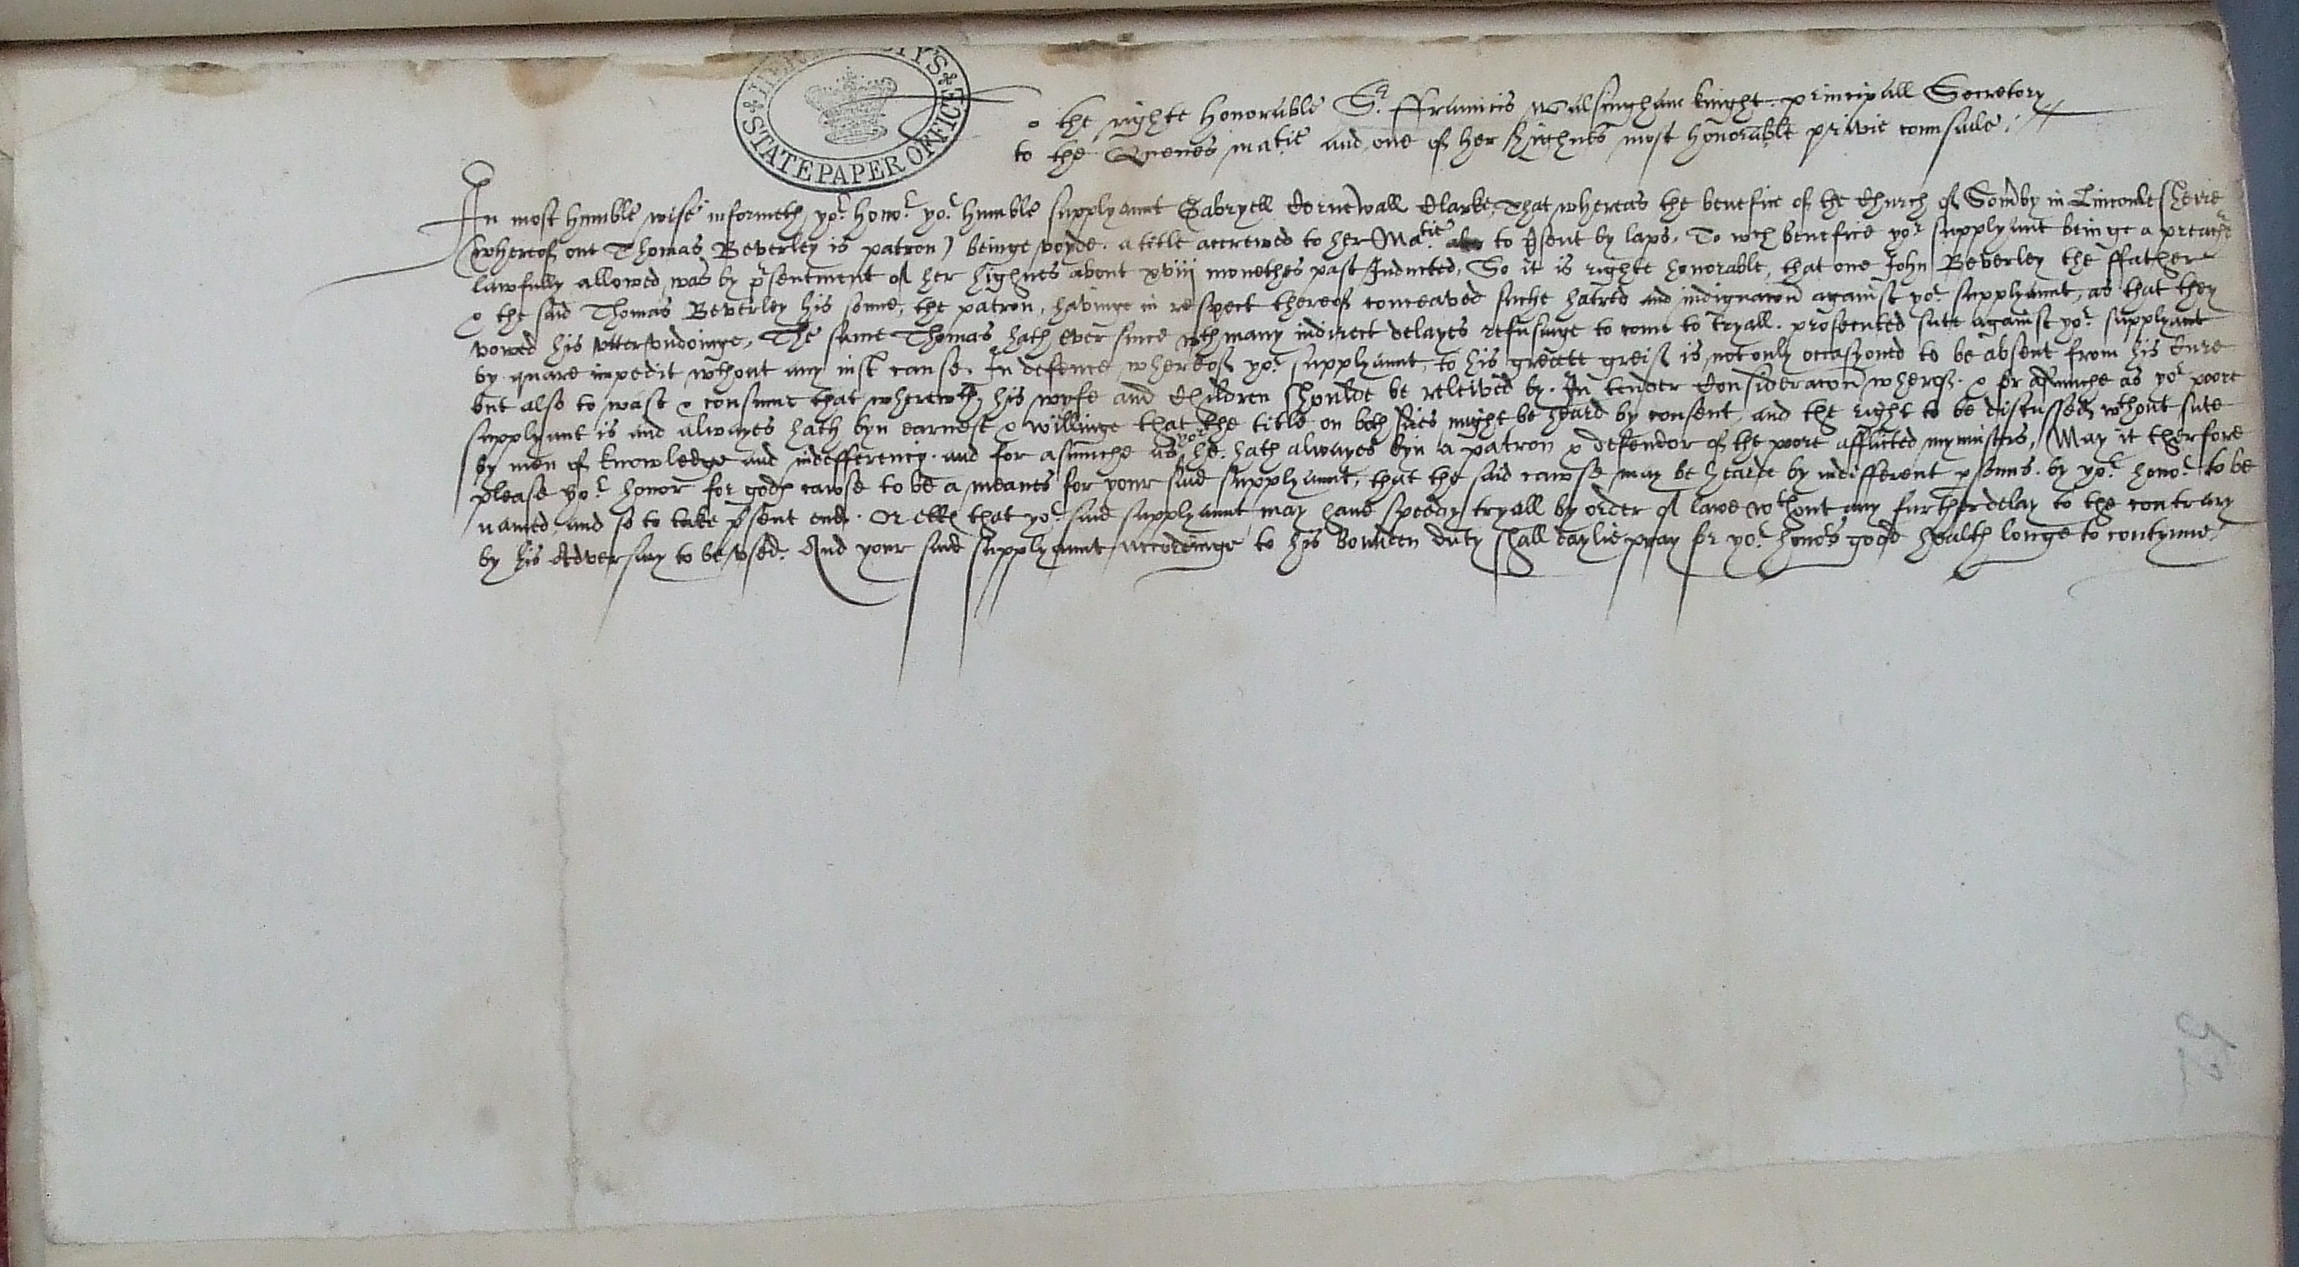 HER MAJESTY'S STATE PAPER OFFICE
To the righte honorable Sr. Ffrauncis Walsingham knight. principall Secretory
to the Quenes matie and one of her highnes most honorable privie counsaile.
In most humble wise informeth yor. honor. yor. humble supplyaunt Gabryell Cornewall Clarke, That whereas the benefice of the Church of Somby in Lincolnesheire
(whereof one Thomas Beverley is patron) beinge voyde. a title accrewed to her Matie. to psent by laps. To wch benefice yor supplyant beinge a preacher
lawfully allowed, was by psentment of her highnes about xviij monethes past Inducted, So it is righte honorable, that one John Beverley the ffather
& the said Thomas Beverley his sonne, the patron, havinge in respect thereof conceaved suche hatred and indignacon against yor. supplyaunt, as that they
vowed his utter undoinge, The same Thomas hath ever since wth many indirect delayes refusinge to come to tryall. prosecuted sute against yor. supplyant
by quare impedit wthout any iust cause. In defence whereof yor. supplyaunt, to his greate greif is not only occasyoned to be absent from his Cure
but also to wast & consume that wherewth his wyfe and Children shoulde be releived by. In tender Consideracon wherof. & for asmuche as yor poore
supplyant is and alwayes hath byn earnest & willinge that the title on both sides might be heard by consent and the right to be discussed wthout sute
by men of knowledge and indefferency. and for asmuche as yor he. hath alwayes byn a patron & defendor of the poore afflicted mynisters, May it therfore
please yor. honor for gods cawse to be a meanes for your said supplyaunt, that the said cawse may be hearde by indifferent psonns. by yor. honor. to be
named, and so to take psent end. Or ells that yor. said supplyaunt may have speedy tryall by order of lawe wthout any further delay to the contrary
by his Adversary to be used. And your said supplyaunt accordinge to his bounden duty shall daylie pray for yor. honors good health longe to contynue